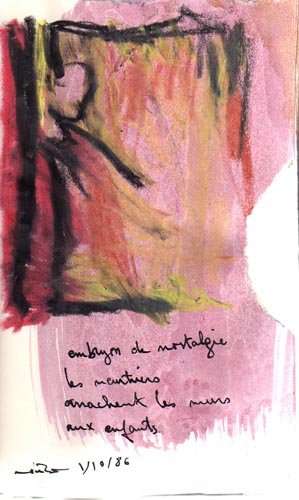 embryon de nostalgie
les meurtriers
arrachent les murs
aux enfants
1/10/86